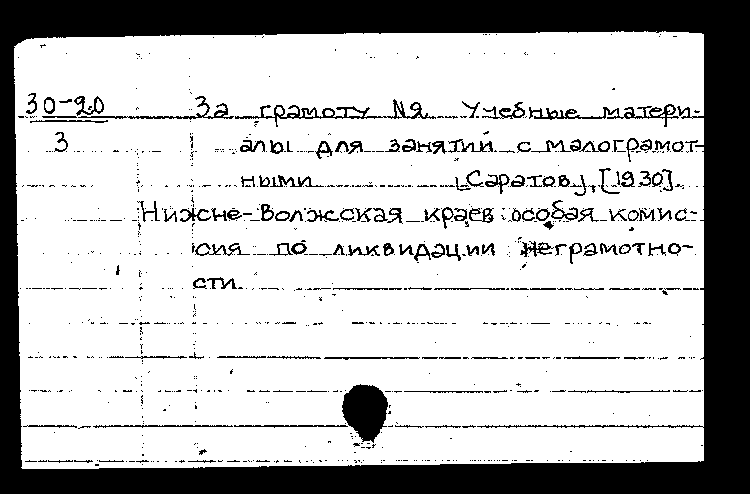 30-20 За грамоту №2. Учебные матери-
3 алы для занятий с малограмот-
ными [Саратов], [1930].
Нижне-Волжская краев. особая комис-
сия по ликвидации неграмотно-
сти.